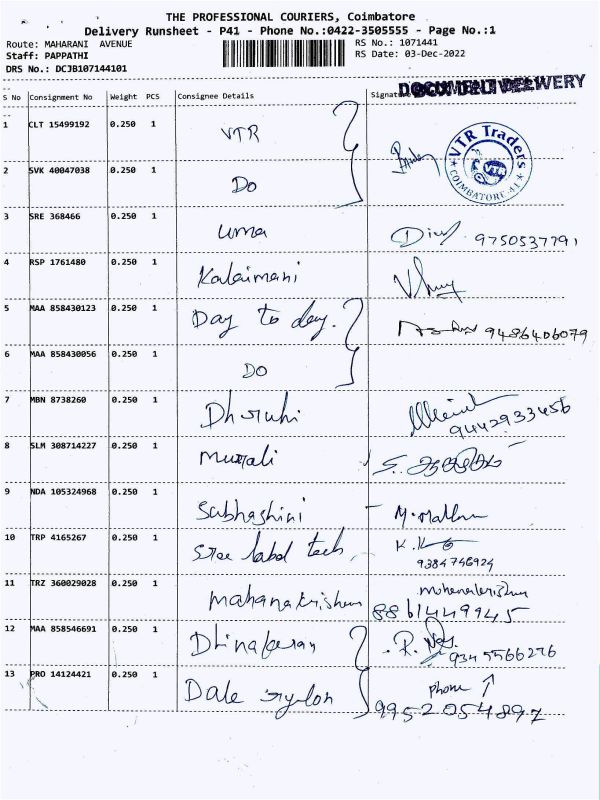 THE PROFESSIONAL COURIERS, Coimbatore
Delivery Runsheet - P41 - Phone No.:0422-3505555 - Page No.:1
Route: MAHARANI AVENUE RS No.: 1071441
Staff: PAPPATHI RS Date: 03-Dec-2022
DRS No.: DCJB107144101
DOCUMENT DELIVERY
S No Consignment No Weight PCS Consignee Details Signature
1 CLT 15499192 0.250 1 VTR
VTR Traders
COIMBATORE-41
2 SVK 40047038 0.250 1 DO
3 SRE 368466 0.250 1 uma 9750537791
4 RSP 1761480 0.250 1 Kalaimani
5 MAA 858430123 0.250 1 Day to day. 9486406079
6 MAA 858430056 0.250 1 DO
7 MBN 8738260 0.250 1 Dhruhi
9442933456
8 SLM 308714227 0.250 1 Murali
9 NDA 105324968 0.250 1 Subhashini
10 TRP 4165267 0.250 1 Sree label tech
9384746924
11 TRZ 360029028 0.250 1 Mahanakrishnan
8861449945
12 MAA 858546691 0.250 1 Dhinakaran
9345566276
13 PRO 14124421 0.250 1 Dale phone ↑
9952054897